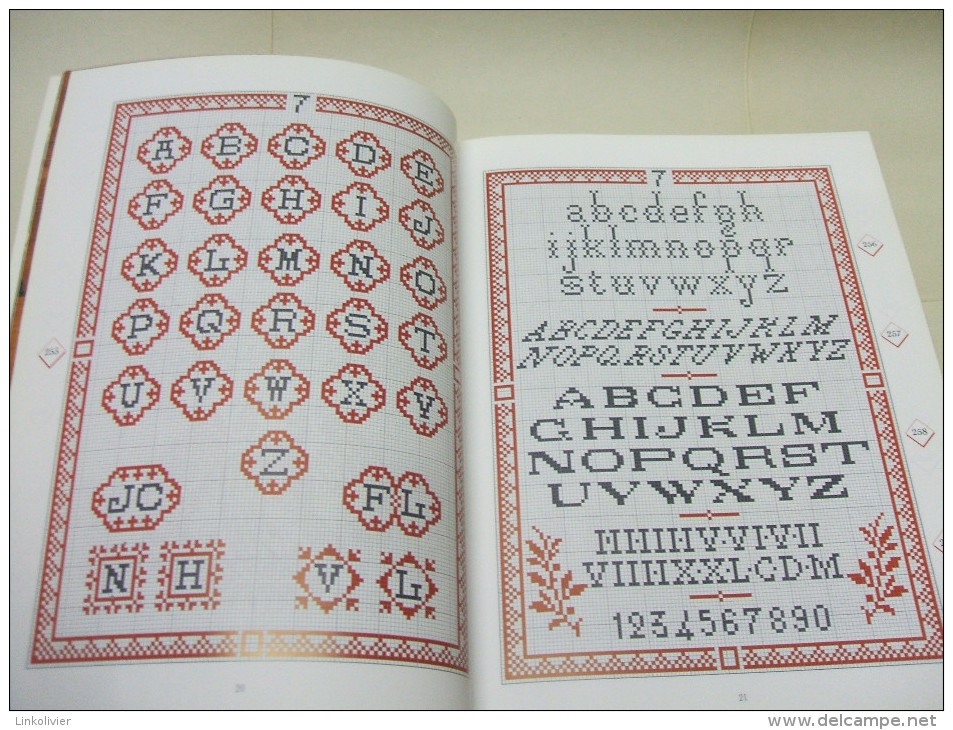 7
A B C D E
F G H I J
K L M N O
P Q R S T
U V W X Y
Z
JC FL
N H V L
255
20
7
abcdefgh
ijklmnopqr
stuvwxyz
ABCDEFGHIJKLM
NOPQRSTUVWXYZ
ABCDEF
GHIJKLM
NOPQRST
UVWXYZ
1234567890
256
257
258
21
Linkolivier
www.delcampe.net